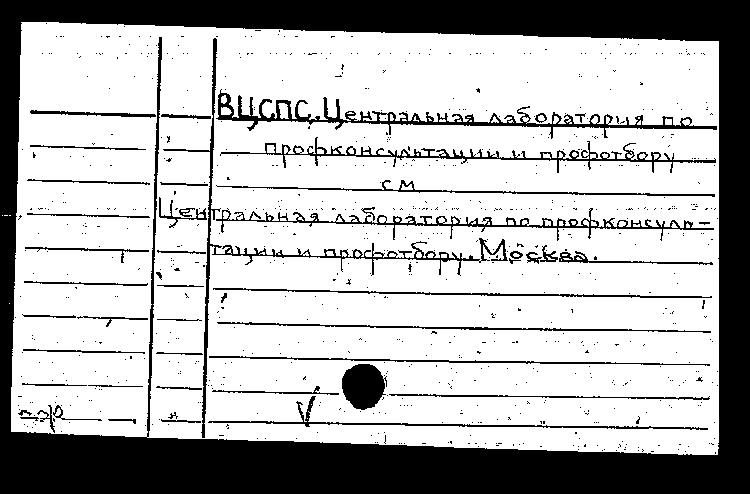 ВЦСПС. Центральная лаборатория по
профконсультации и профотбору
см
Центральная лаборатория по профконсуль-
тации и профотбору. Москва.